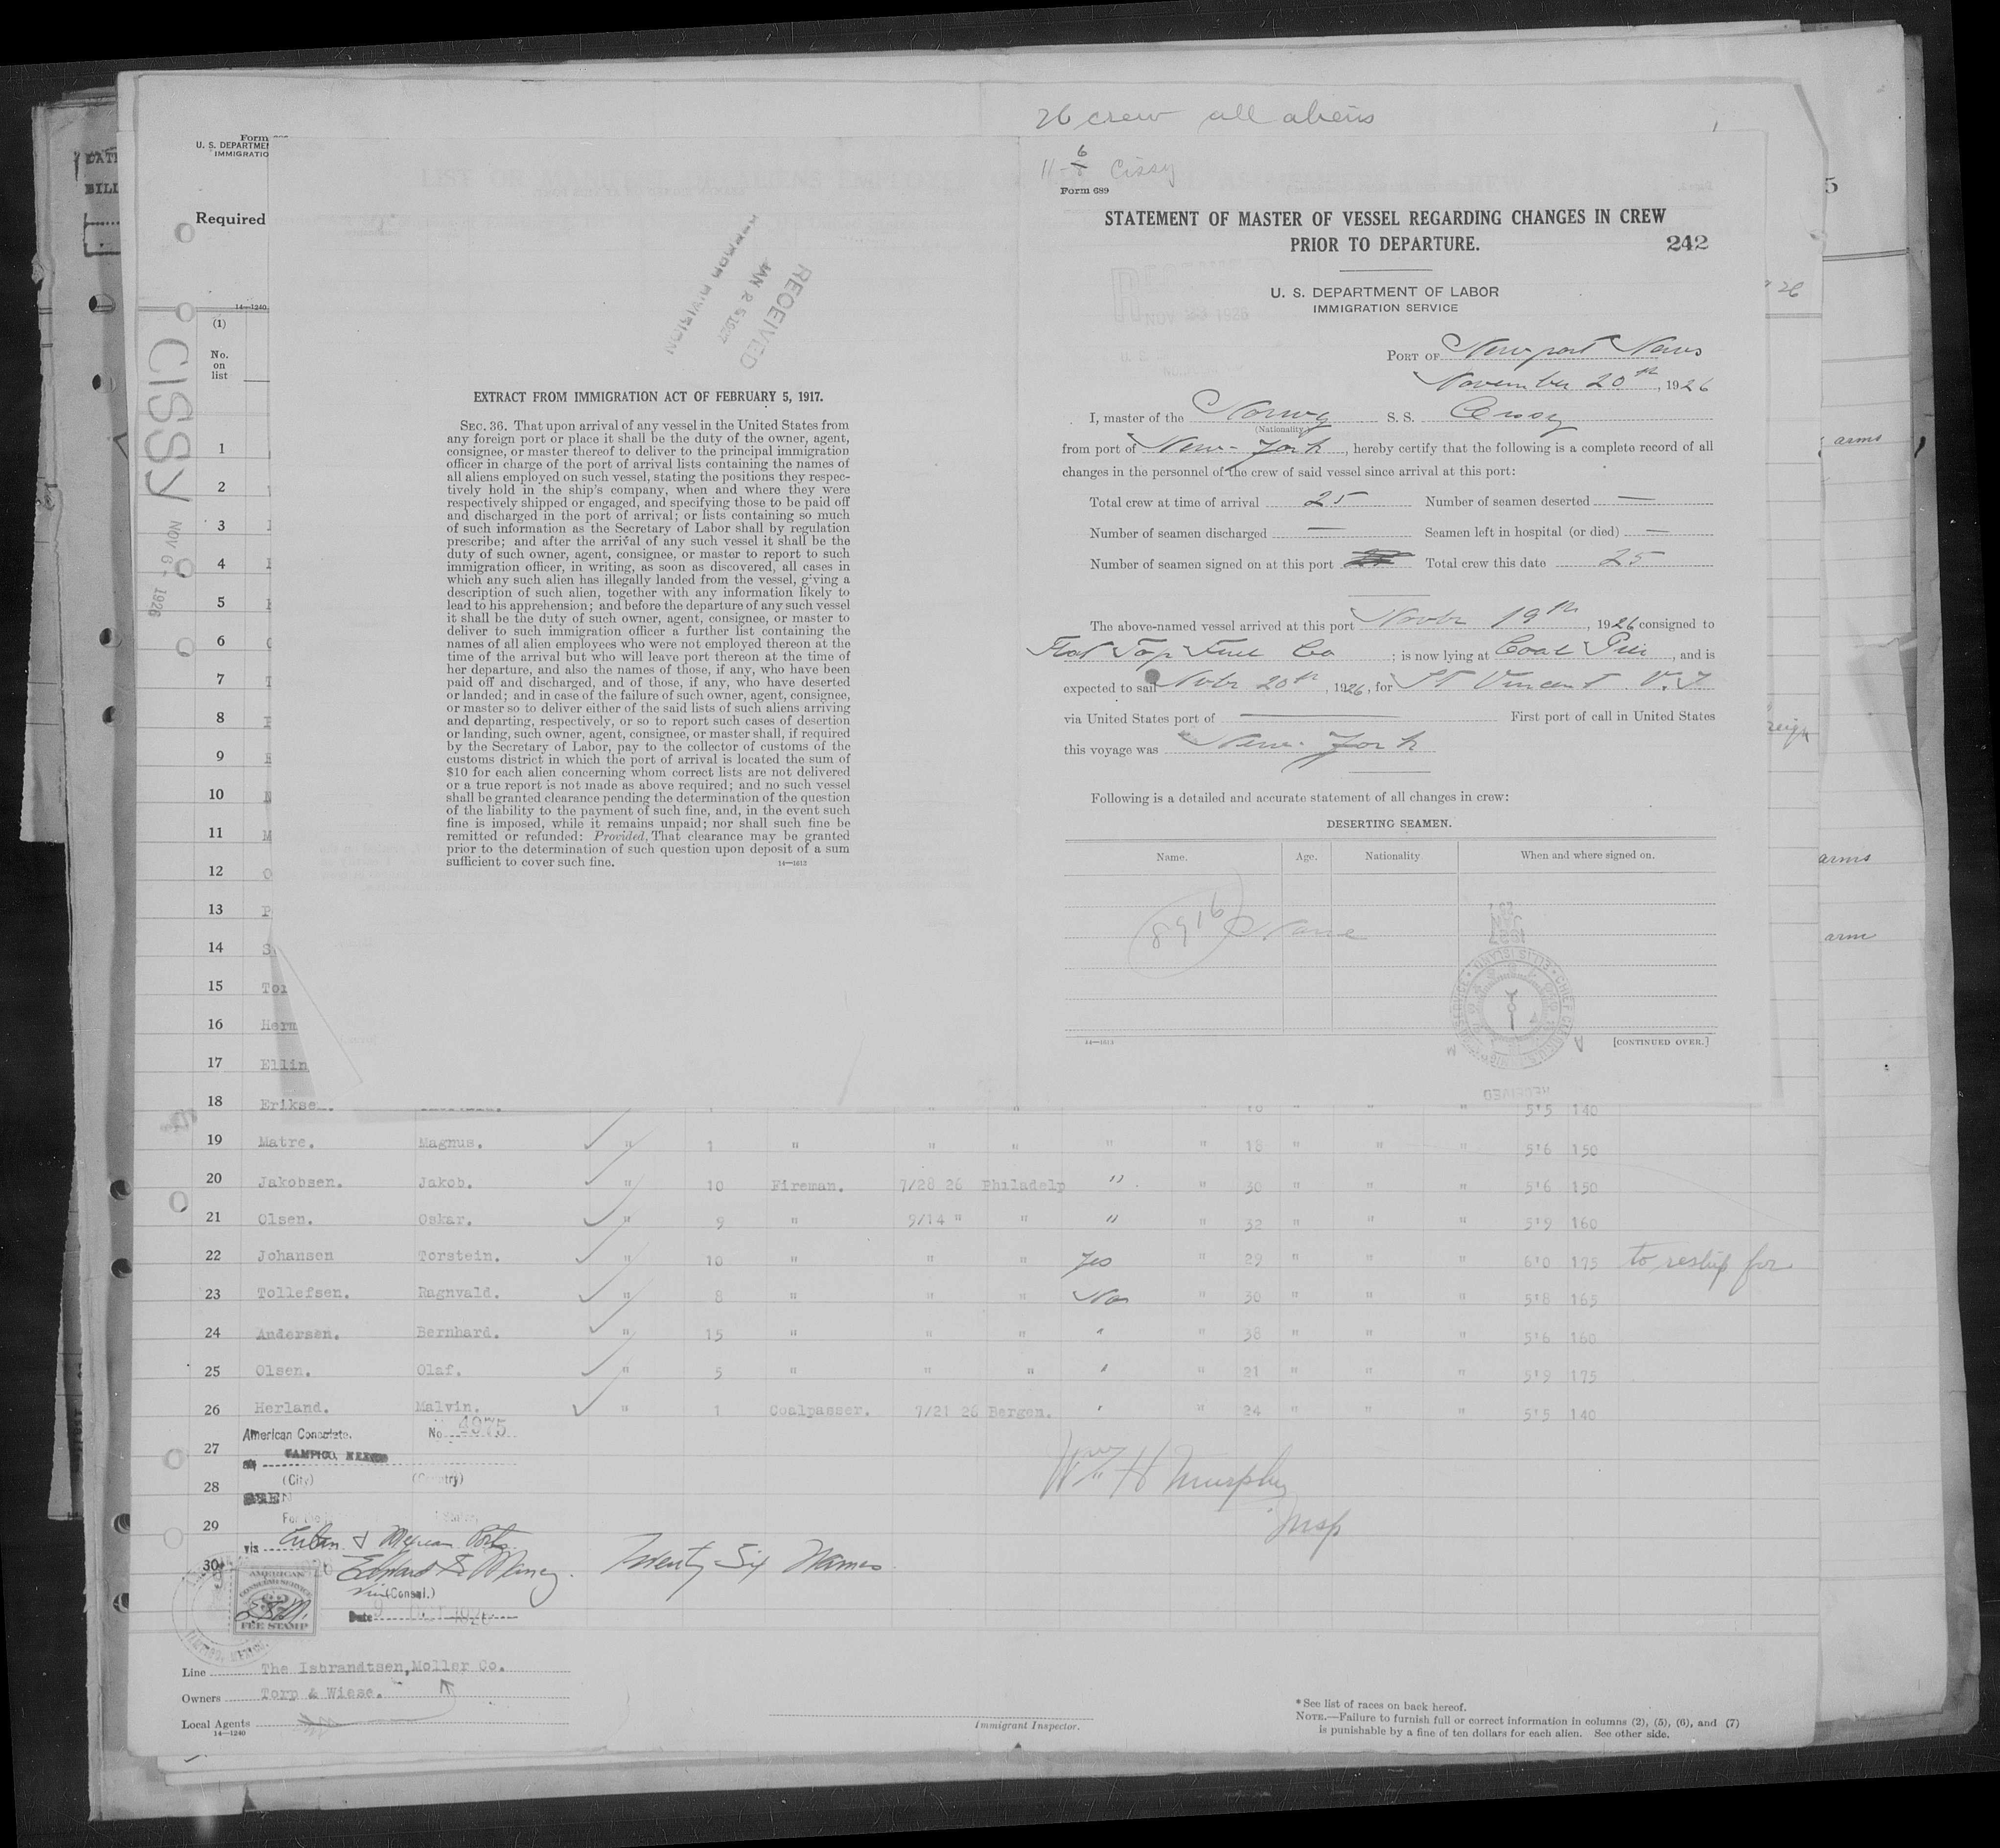 26 crew all aliens
11-6 Cissy
Form 689
STATEMENT OF MASTER OF VESSEL REGARDING CHANGES IN CREW
PRIOR TO DEPARTURE.
242
U. S. DEPARTMENT OF LABOR
IMMIGRATION SERVICE
PORT OF Newport News
November 20th, 1926
I, master of the Norwg S. S. Cissy
(Nationality)
from port of New-York, hereby certify that the following is a complete record of all
changes in the personnel of the crew of said vessel since arrival at this port:
Total crew at time of arrival 25 Number of seamen deserted —
Number of seamen discharged — Seamen left in hospital (or died) —
Number of seamen signed on at this port Total crew this date 25
The above-named vessel arrived at this port Novbr 19th, 1926 consigned to
Flat Top Fuel Co ; is now lying at Coal Pier, and is
expected to sail Nvbr 20th, 1926, for St Vincent V.I
via United States port of — First port of call in United States
this voyage was New-York
Following is a detailed and accurate statement of all changes in crew:
DESERTING SEAMEN.
Name. Age. Nationality When and where signed on.
8916 None
14—1613 [CONTINUED OVER.]
RECEIVED
JAN 25 1927
EXTRACT FROM IMMIGRATION ACT OF FEBRUARY 5, 1917.
SEC. 36. That upon arrival of any vessel in the United States from
any foreign port or place it shall be the duty of the owner, agent,
consignee, or master thereof to deliver to the principal immigration
officer in charge of the port of arrival lists containing the names of
all aliens employed on such vessel, stating the positions they respec-
tively hold in the ship's company, when and where they were
respectively shipped or engaged, and specifying those to be paid off
and discharged in the port of arrival; or lists containing so much
of such information as the Secretary of Labor shall by regulation
prescribe; and after the arrival of any such vessel it shall be the
duty of such owner, agent, consignee, or master to report to such
immigration officer, in writing, as soon as discovered, all cases in
which any such alien has illegally landed from the vessel, giving a
description of such alien, together with any information likely to
lead to his apprehension; and before the departure of any such vessel
it shall be the duty of such owner, agent, consignee, or master to
deliver to such immigration officer a further list containing the
names of all alien employees who were not employed thereon at the
time of the arrival but who will leave port thereon at the time of
her departure, and also the names of those, if any, who have been
paid off and discharged, and of those, if any, who have deserted
or landed; and in case of the failure of such owner, agent, consignee,
or master so to deliver either of the said lists of such aliens arriving
and departing, respectively, or so to report such cases of desertion
or landing, such owner, agent, consignee, or master shall, if required
by the Secretary of Labor, pay to the collector of customs of the
customs district in which the port of arrival is located the sum of
$10 for each alien concerning whom correct lists are not delivered
or a true report is not made as above required; and no such vessel
shall be granted clearance pending the determination of the question
of the liability to the payment of such fine, and, in the event such
fine is imposed, while it remains unpaid; nor shall such fine be
remitted or refunded: Provided, That clearance may be granted
prior to the determination of such question upon deposit of a sum
sufficient to cover such fine. 14—1613
Form
U. S. DEPARTME
IMMIGRATIO
Required
14—1240
CISSY
NOV 6 - 1926
(1)
No.
on
list
1
2
3
4
5
6
7
8
9
10
11 M
12 O
13 P
14 S
15 Tor
16 Herm
17 Ellin
18 Erikse 5'5 140
19 Matre. Magnus. " 1 " " " " " 18 " " " 5'6 150
20 Jakobsen. Jakob. " 10 Fireman. 7/28 26 Philadelp " " 30 " " " 5'6 150
21 Olsen. Oskar. " 9 " 9/14 " " " " 32 " " " 5'9 160
22 Johansen Torstein. " 10 " " " Yes " 29 " " " 6'0 175 to reship for
23 Tollefsen. Ragnvald. " 8 " " " No " 30 " " " 5'8 165
24 Andersen. Bernhard. " 15 " " " " " 38 " " " 5'6 160
25 Olsen. Olaf. " 5 " " " " " 21 " " " 5'9 175
26 Herland. Malvin. " 1 Coalpasser. 7/21 26 Bergen. " " 24 " " " 5'5 140
27
28
29
30
American Consulate. No. 4975
TAMPICO, MEXICO
(City) (Country)
SEEN
via Cuban & Mexican Ports.
(Consul.)
Date
AMERICAN
CONSULAR SERVICE
FEE STAMP
Twenty Six Names
Wm H Murphy
Insp
Line The Isbrandtsen, Moller Co.
Owners Torp & Wiese.
Local Agents
14—1240
Immigrant Inspector.
*See list of races on back hereof.
NOTE.—Failure to furnish full or correct information in columns (2), (5), (6), and (7)
is punishable by a fine of ten dollars for each alien. See other side.
arms
reign
arms
arm